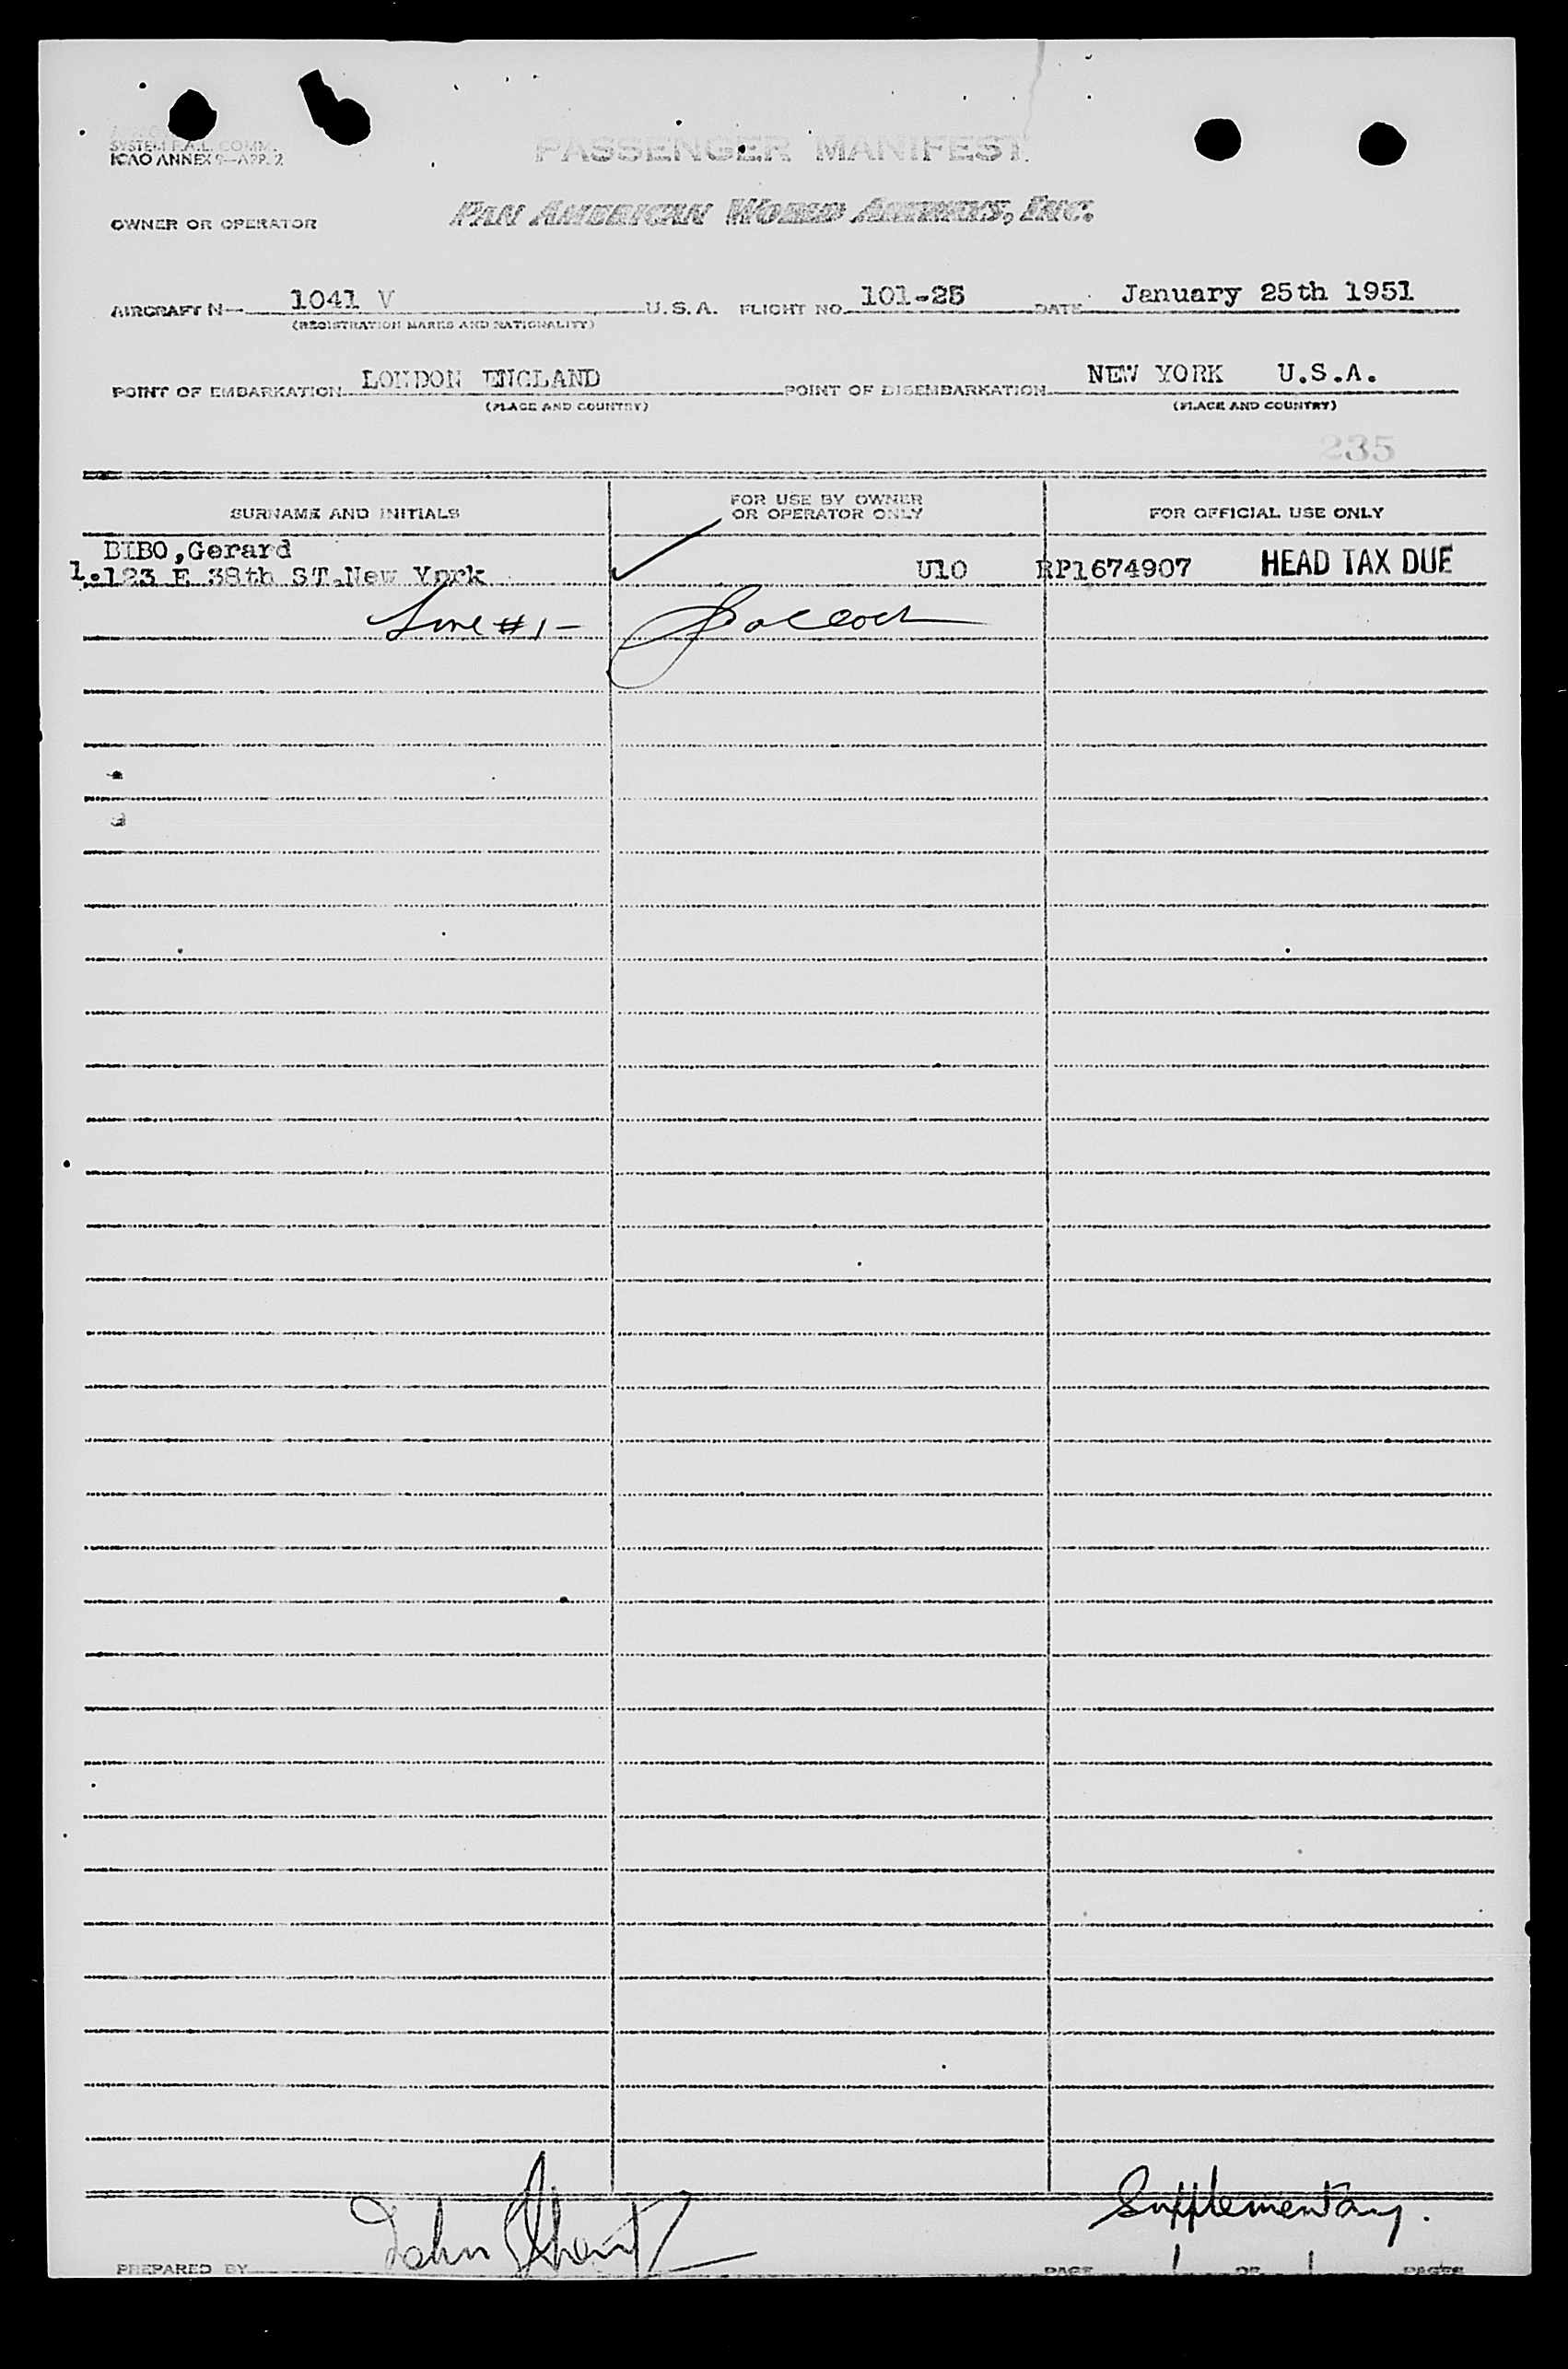 SYSTEM P.A.L. COMM.
ICAO ANNEX 9—APP. 2
PASSENGER MANIFEST
OWNER OR OPERATOR
PAN AMERICAN WORLD AIRWAYS, INC.
AIRCRAFT N— 1041 V U.S.A. FLIGHT NO. 101-25 DATE January 25th 1951
(REGISTRATION MARKS AND NATIONALITY)
POINT OF EMBARKATION LONDON ENGLAND POINT OF DISEMBARKATION NEW YORK U.S.A.
(PLACE AND COUNTRY) (PLACE AND COUNTRY)
235
SURNAME AND INITIALS FOR USE BY OWNER OR OPERATOR ONLY FOR OFFICIAL USE ONLY
BIBO,Gerard
1. 123 E 38th ST.New York U10 RP1674907 HEAD TAX DUE
Line #1-
Supplementary.
PREPARED BY John PAGE 1 OF 1 PAGES